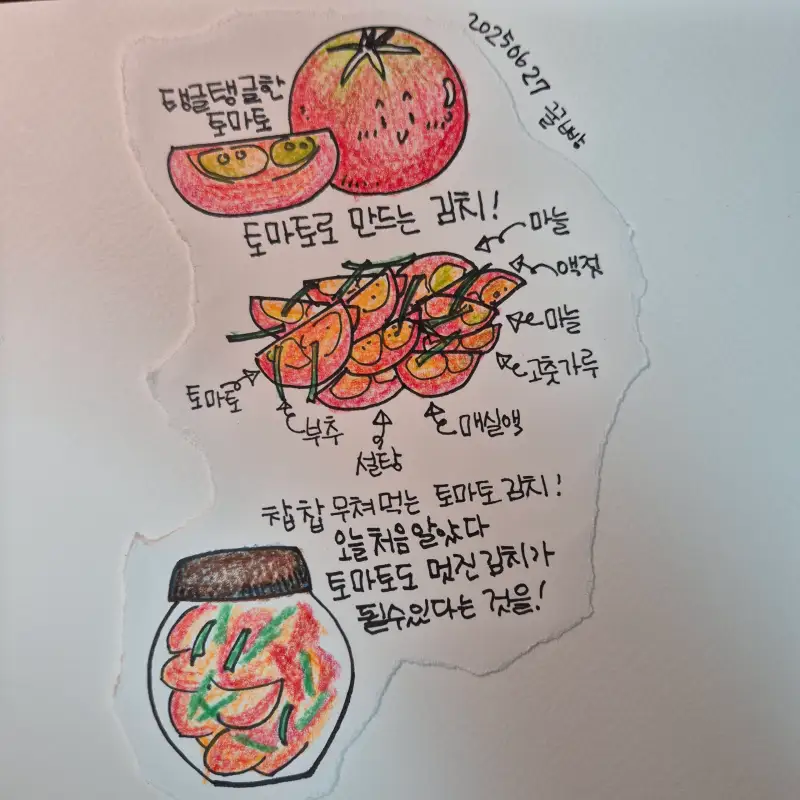 20250627 꿀빵
탱글탱글한
토마토
토마토로 만드는 김치!
마늘
액젓
마늘
고춧가루
토마토
부추
설탕
매실액
챱챱 무쳐먹는 토마토김치!
오늘처음알았다
토마토도 멋진김치가
될수있다는 것을!